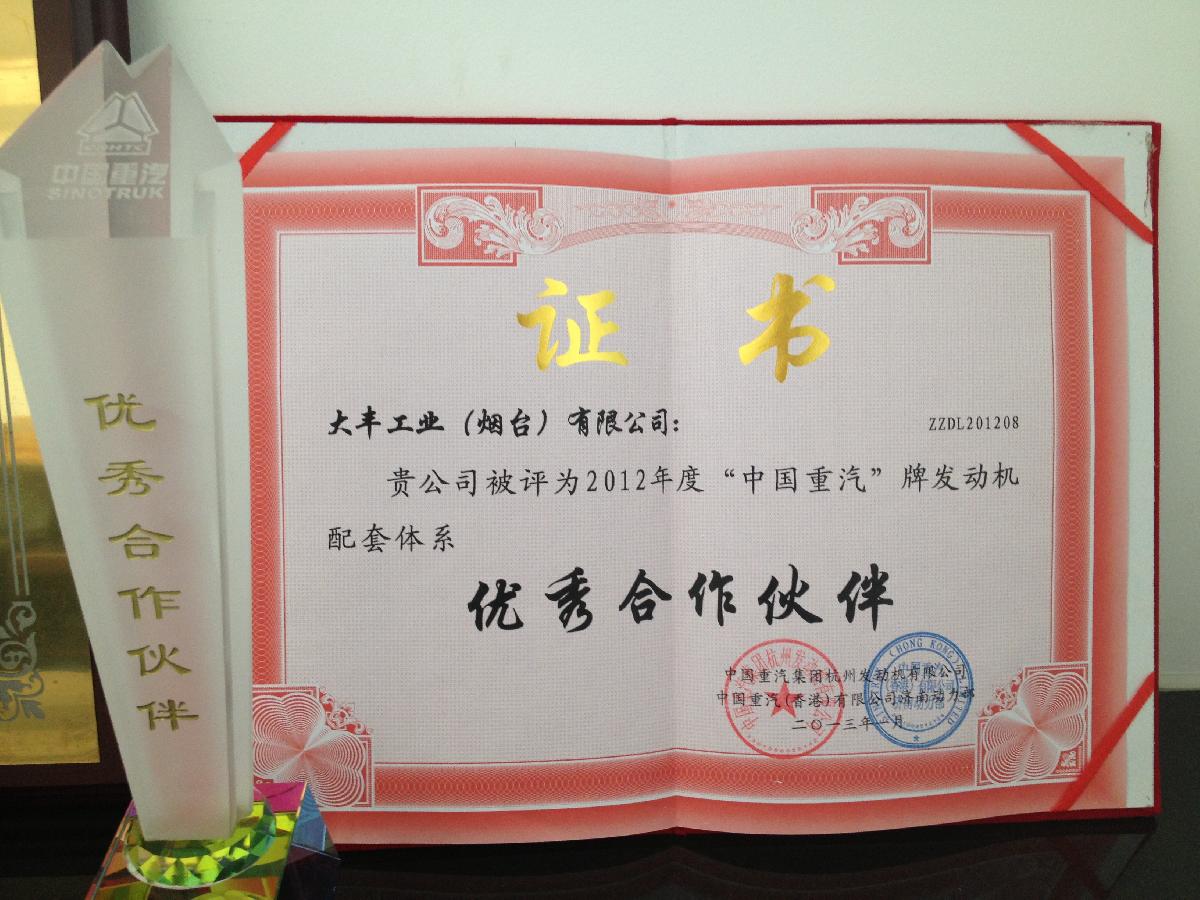 CNHTC
中国重汽
SINOTRUK
优秀合作伙伴
证书
大丰工业（烟台）有限公司：
ZZDL201208
贵公司被评为2012年度“中国重汽”牌发动机
配套体系
优秀合作伙伴
中国重汽集团杭州发动机有限公司
中国重汽(香港)有限公司济南动力部
二〇一三年一月